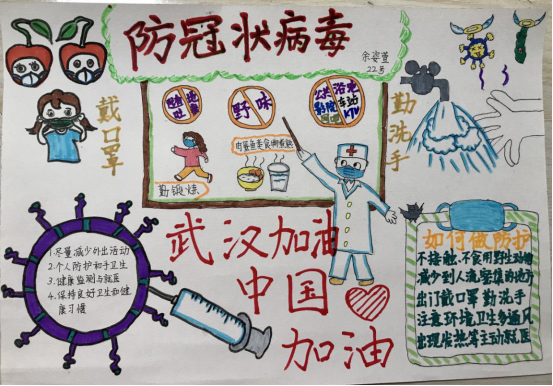 防冠状病毒
余姿萱
22号
戴口罩
随地吐痰
野味
公共浴池
影院 车站
KTV
勤洗手
肉蛋鱼类食物煮熟
勤锻炼
武汉加油
中国
加油
1.尽量减少外出活动
2.个人防护和手卫生
3.健康监测与就医
4.保持良好卫生和健
康习惯
如何做防护
不接触、不食用野生动物
减少到人流密集的地方
出门戴口罩 勤洗手
注意环境卫生多通风
出现发热等主动就医